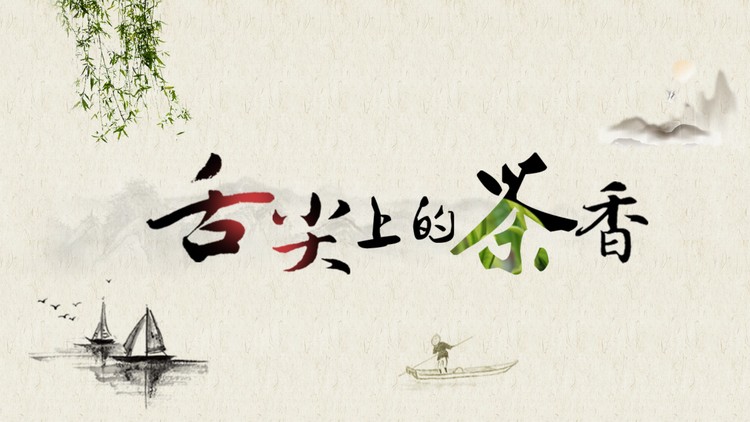 舌尖上的茶香